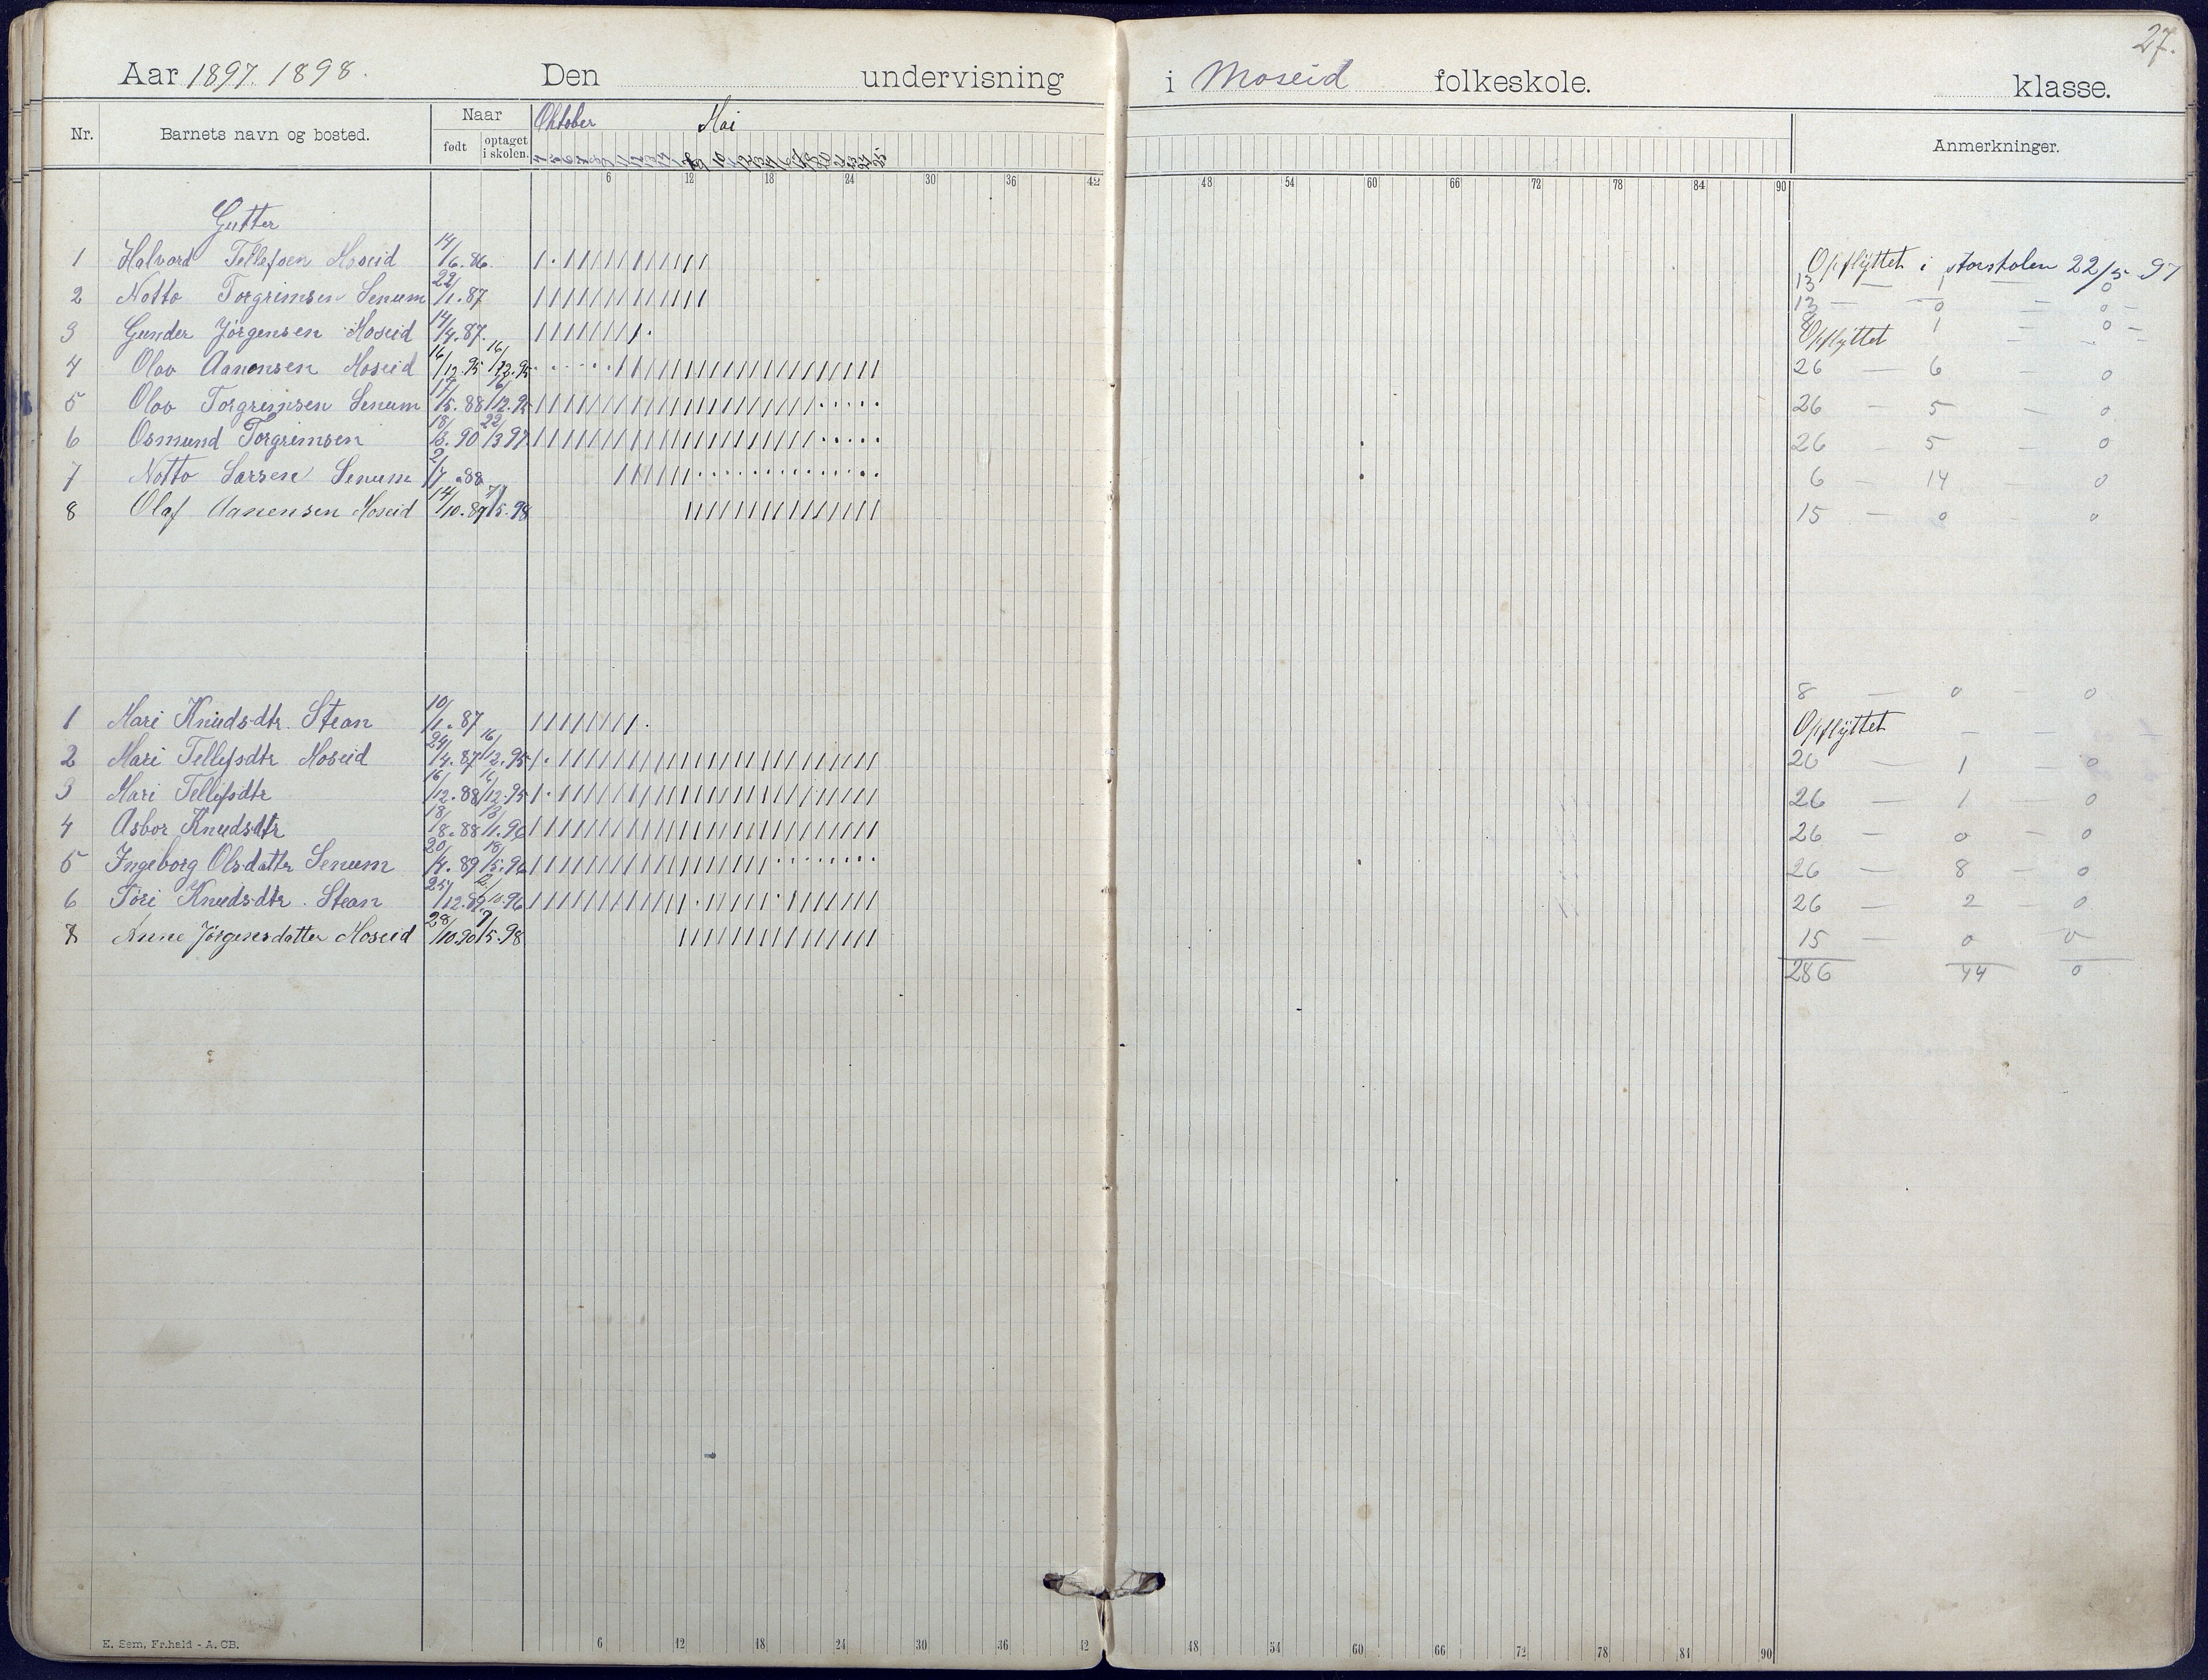 27.
Aar 1897. 1898. Den undervisning i Moseid folkeskole. klasse.
Nr. Barnets navn og bosted. Naar født optaget i skolen. Oktober Mai Anmerkninger.
6 12 18 24 30 36 42 48 54 60 66 72 78 84 90
Gutter
1 Halvard Tellefsen Moseid 14/6.86. Opflyttet i storskolen 22/5 97
13 — 1 — 0
2 Notto Torgrimsen Senum 22/1.87 13 — 0 — 0 —
3 Gunder Jörgensen Moseid 14/4.87. 8 1 — 0 —
Opflyttet
4 Olav Aanonsen Moseid 16/12.95 16/12.95 26 — 6 — 0
5 Olav Torgrimsen Senum 17/5.88 16/12.95 26 — 5 — 0
6 Osmund Torgrimsen 18/3.90 22/3 97 26 — 5 — 0
7 Notto Larsen Senum 2/7.88 6 — 14 — 0
8 Olaf Aanensen Moseid 14/10.89 7/5.98 15 — 0 — 0
8 — 0 — 0
1 Mari Knudsdtr. Stean 10/1.87 Opflyttet — —
2 Mari Tellefsdtr Moseid 24/4.87 16/12.95 26 — 1 — 0
3 Mari Tellefsdtr 16/12.88 16/12.95 26 — 1 — 0
4 Asbor Knudsdtr 18/8.88 13/1.96 26 — 0 — 0
5 Ingeborg Olsdattr Senum 20/4.89 18/5.96 26 — 8 — 0
6 Töri Knudsdtr. Stean 25/12.89 2/10.96 26 — 2 — 0
8 Anne Jörgensdatter Moseid 28/10.90 7/5.98 15 — 0 0
286 44 0
E. Sem, Fr.hald - A. CB.
6 12 18 24 30 36 42 48 54 60 66 72 78 84 90